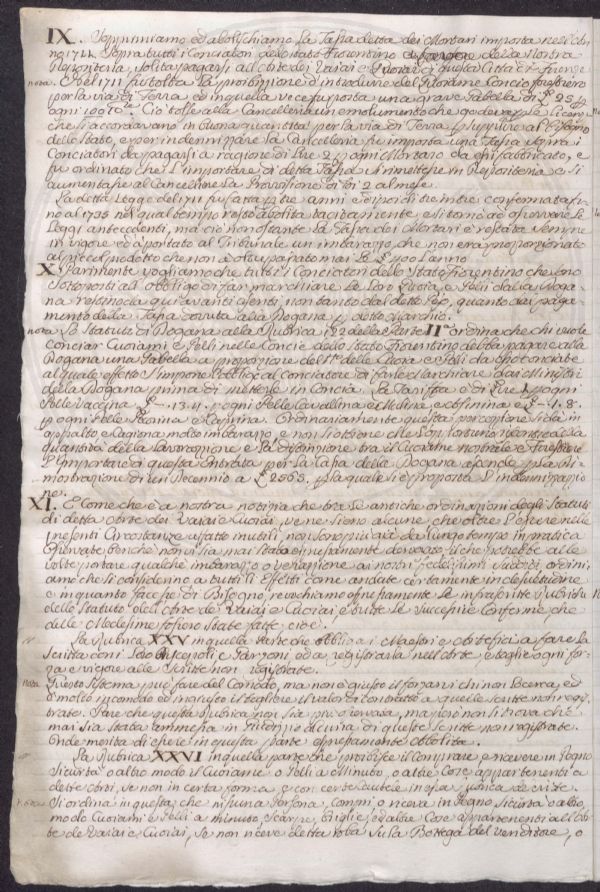 IX. Sopprimiamo ed abolischiamo la Tassa detta dei Mortari imposta nell'anno
1711 sopra tutti i Conciatori dello Stato Fiorentino della Nostra
Depositeria, solita pagarsi all'Arte dei Vaiai e Cuoiai di questa Città di Firenze
nota. Nel 1711 fu tolta la proibizione d'introdurre del Corame Concio forestiero
per la via di Terra ed in quella vece fu posta una grave Gabella di £ 25
ogni 100. Ciò tolse alla Cancelleria un emolumento che godeva per le licenze
che si accordavano in buona quantità per la via di Terra p supplire al bisogno
dello Stato, e per indennizzare la Cancelleria fu imposta una Tassa sopra i
Conciatori da pagarsi a ragione di Lire 2 p ogni Mortaro da chi fabbricato, e
fu ordinato che l'importare di detta Tassa si rimettesse in Depositeria e si
aumentasse al Cancelliere la Provvisione di 2 al mese.
La detta Legge del 1711 fu fatta p tre anni e di poi di tre in tre confermata fi-
no al 1735 nel qual tempo restò abolita tacitamente e si tornò ad osservare le
Leggi antecedenti, ma ciò non ostante la Tassa dei Mortari è restata sempre
in vigore ed à portato al Tribunale un imbarazzo, che non era proporzionato
al piccol prodotto che non à oltrepassato mai le £ 400 l'anno
X. Parimente vogliamo che tutti i Conciatori dello Stato Fiorentino che sono
sottoposti all'obbligo di far marchiare le Loro Cuoia, e Pelli dalla Doga-
na restino da qui avanti esenti non tanto dal detto peso, quanto dal paga-
mento della Tassa dovuta alla Dogana p detto Marchio.
nota. Lo Statuto di Dogana alla Rubrica 122 della Parte IIa ordina che chi vuole
conciar Cuoiami e Pelli nelle Concie dello Stato Fiorentino debba pagare alla
Dogana una Gabella a proporzione del n.° delle Cuoia e Pelli da esso conciate
al quale effetto s'impone l'obbligo al Conciatore di farle Marchiare dai Ministri
della Dogana prima di metterle in Concia. La Tariffa è di Lire 1 p ogni
Pelle Vaccina, £ -. 13. 4. p ogni Pelle Cavallina e Mulina, ed Asinina e £ -. 1. 8.
p ogni Pelle Pecorina e Caprina. Ordinariamente questa percezione si dà in
appalto e cagiona molto imbarazzo, e non si ottiene che con fortuna riscontro della
quantità della lavorazione e la distinzione tra il Cuoiame nostrale e forestiero
L'importare di questa entrata per la Cassa della Dogana ascende p la di-
mostrazione di un Decennio a £ 2565. p la quale si è proposta l'indennizzazio
ne.
XI. E Come che è a nostra notizia che tra le antiche ordinazioni degli Statuti
di detta Arte dei Vaiai e Cuoiai, ve ne sieno alcune, che oltre l'essere nelle
presenti Circostanze affatto inutili, non sono più già da lungo tempo in pratica
osservate, benchè non vi sia mai stata espressamente derogato, il che potrebbe alle
volte portare qualche imbarazzo o vessazione ai nostri fedelissimi sudditi, ordini-
amo che si considerino a tutti li Effetti come andate certamente in desuetudine
e in quanto facesse di Bisogno, revochiamo espressamente le infrascritte Rubriche
dello Statuto dell'Arte de Vaiai e Cuoiai e tutte le successive Conferme che
delle Medesime fossero state fatte, cioè:
La Rubrica XXV in quella Parte che obbliga i Maestri ed Artefici a fare la
Scritta con i loro Discepoli e Garzoni ed a registrarla nell'Arte, e toglie ogni for-
za e vigore alle Scritte non registrate.
nota Questo Sistema può fare del Comodo, ma non è giusto il forzarvi chi non lo cerca, ed
è molto incomodo ed ingiusto il togliere il valor di contratto a quelle scritte non regi-
strate. Pare che questa Rubrica non sia più osservata, ma però non si trova che
mai sia stata ammessa in Giudizio alcuna di queste Scritte non registrate.
Onde merita di essere in questa parte espressamente Abolita.
La Rubrica XXVI in quella parte che proibisce il Comprare e ricevere in Pegno
Sicurtà o altro modo il Cuoiame o Pelli a Minuto, o altre Cose appartenenti a
dette Arti, se non in certa forma, e con certe Cautele in essa rubrica descritte.
nota. Si ordina in questa, che nessuna Persona, compri o riceva in Pegno Sicurtà o altro
modo Cuoiami e Pelli a minuto, Scarpe, Briglie, ed altre Cose appartenenti all'Ar-
te de Vaiai e Cuoiai, se non riceve detta roba sulla Bottega del Venditore, o